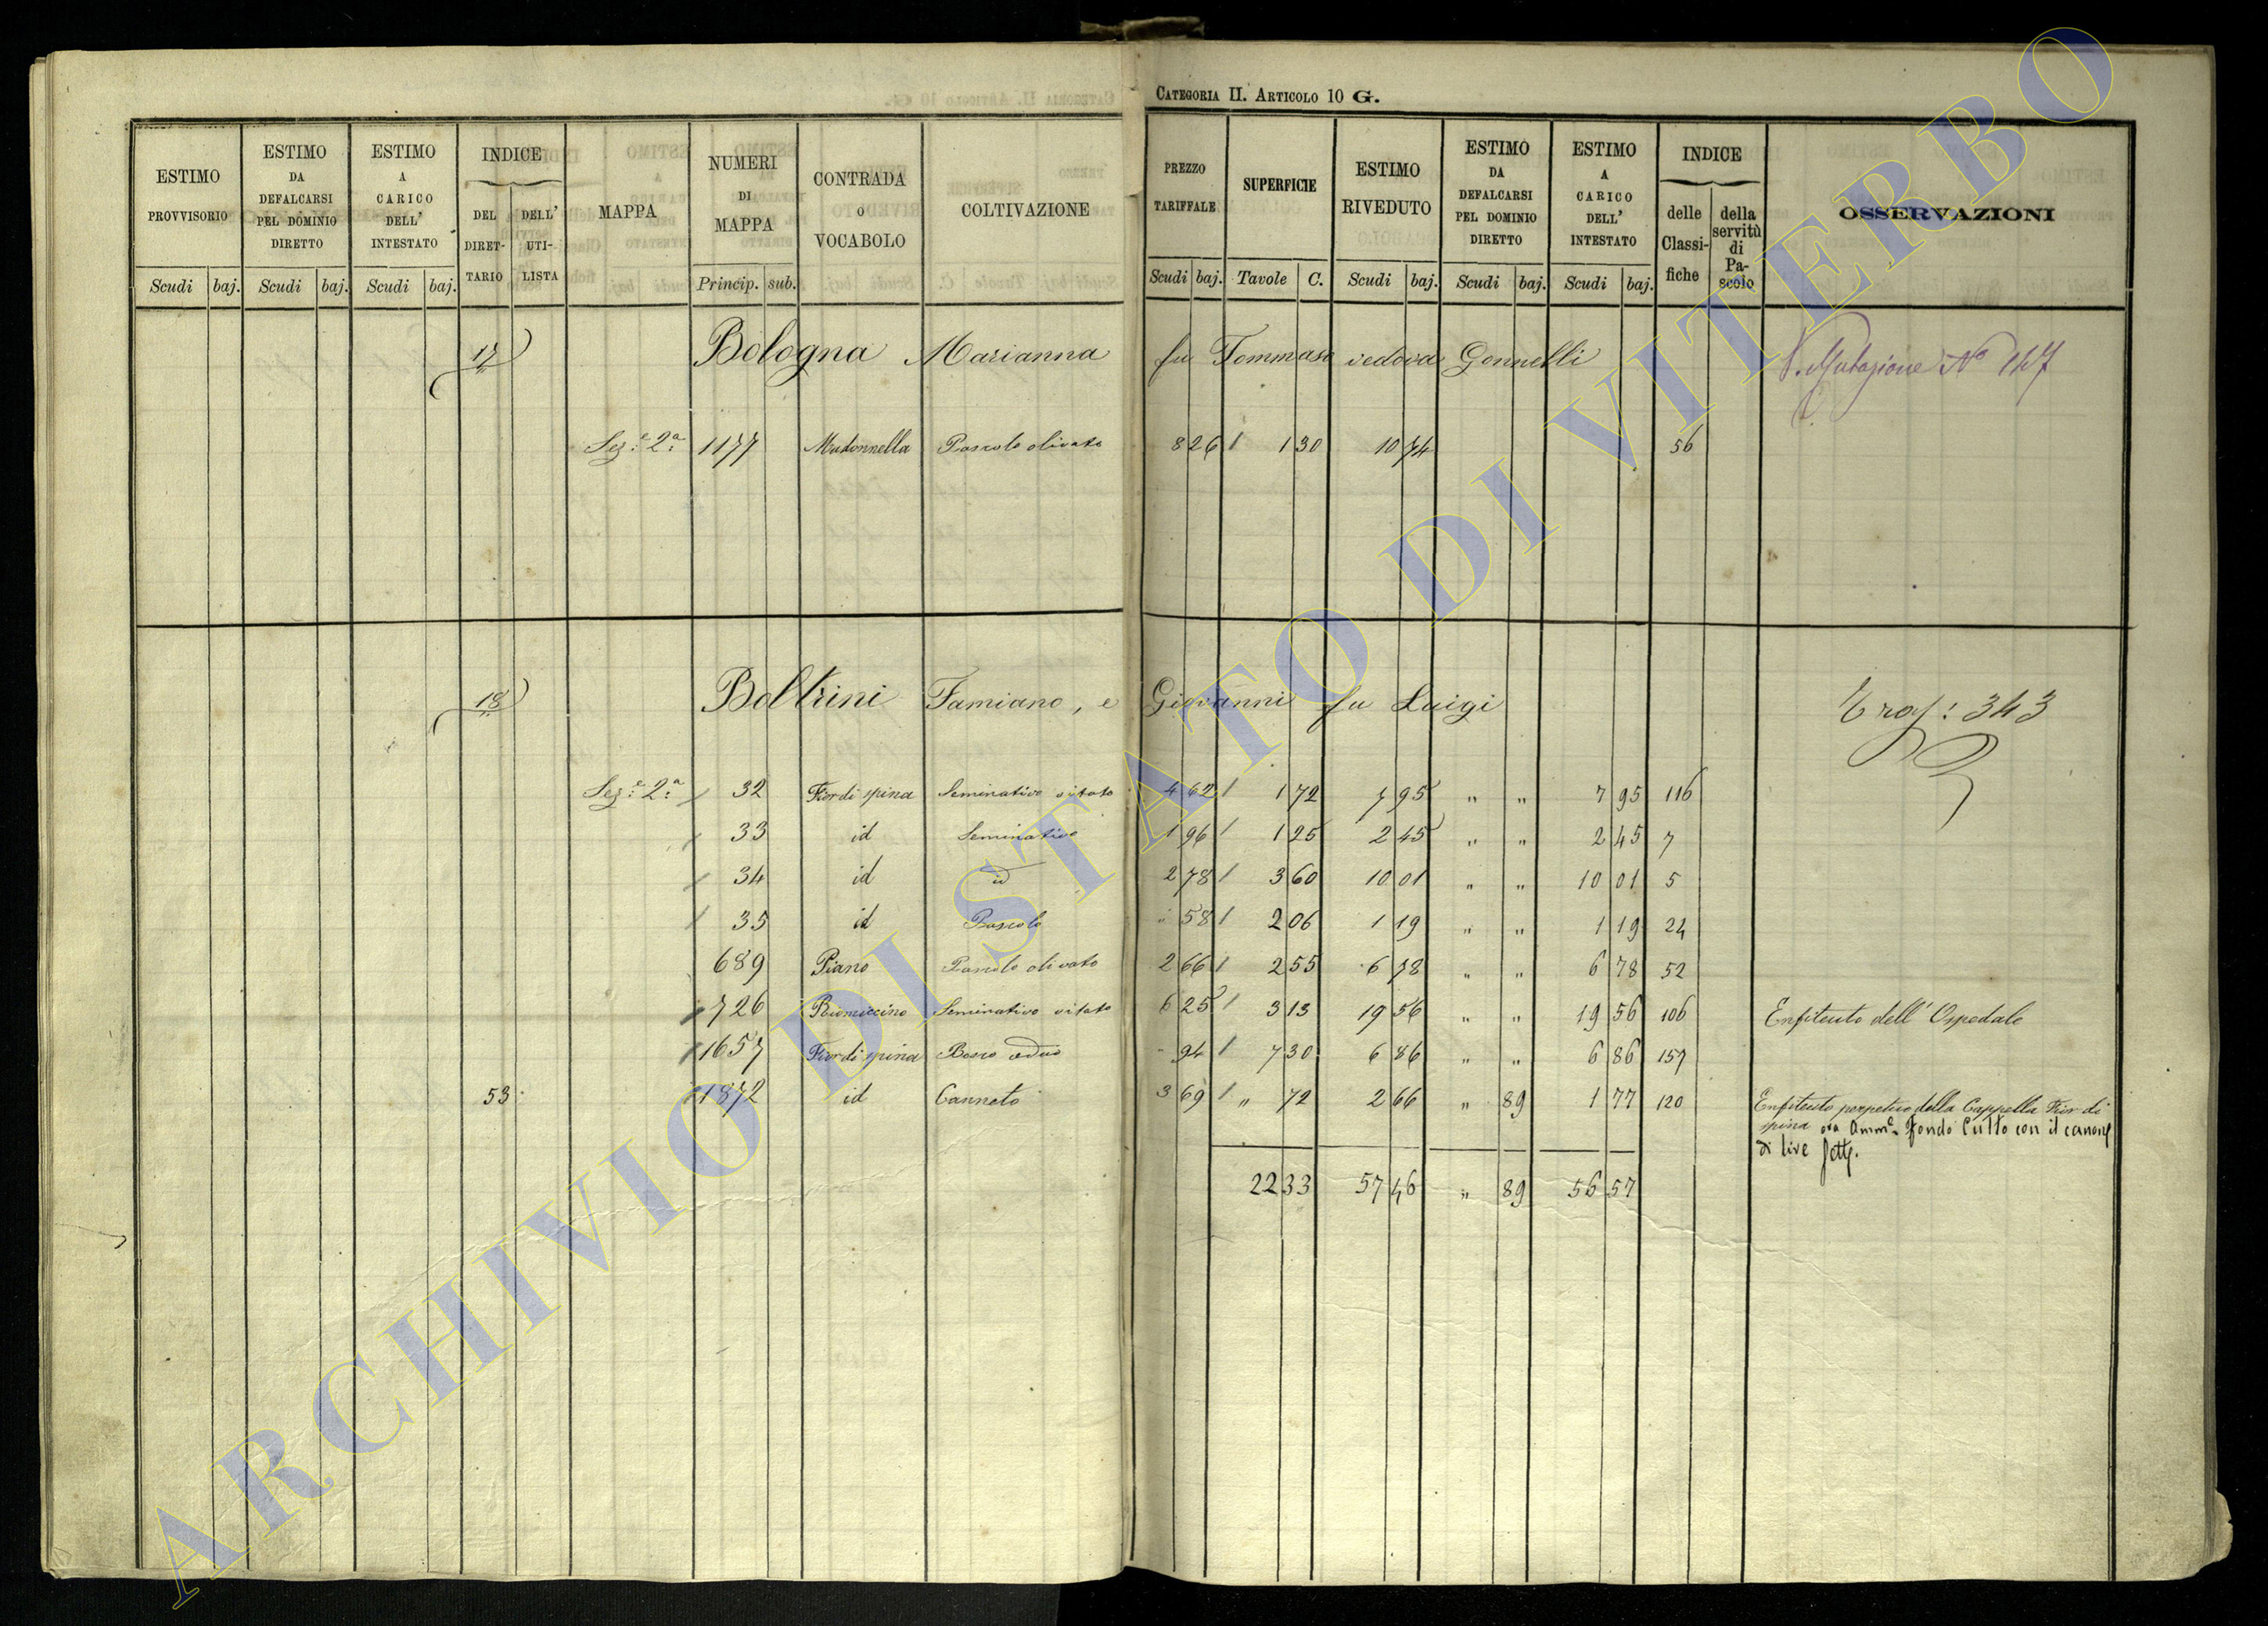 CATEGORIA II. ARTICOLO 10 G.
ESTIMO PROVVISORIO Scudi baj. | ESTIMO DA DEFALCARSI PEL DOMINIO DIRETTO Scudi baj. | ESTIMO A CARICO DELL' INTESTATO Scudi baj. | INDICE DEL DIRETTARIO DELL' UTILISTA | MAPPA | NUMERI DI MAPPA Princip. sub. | CONTRADA O VOCABOLO | COLTIVAZIONE | PREZZO TARIFFALE Scudi baj. | SUPERFICIE Tavole C. | ESTIMO RIVEDUTO Scudi baj. | ESTIMO DA DEFALCARSI PEL DOMINIO DIRETTO Scudi baj. | ESTIMO A CARICO DELL' INTESTATO Scudi baj. | INDICE delle Classifiche della servitù di Pascolo | OSSERVAZIONI
17 Bologna Marianna fu Tommaso vedova Gonnelli V. Mutazione No 147
Sez.e 2a 1177 Madonnella Pascolo olivato 8 26 1 30 10 74 56
18 Boltrini Famiano, e Giovanni fu Luigi 343
Sez.e 2a 32 Fiordispina Seminativo vitato 4 62 1 72 7 95 " " 7 95 116
33 id Seminativo 1 96 1 25 2 45 " " 2 45 7
34 id id 2 78 3 60 10 01 " " 10 01 5
35 id Pascolo " 58 2 06 1 19 " " 1 19 24
689 Piano Pascolo olivato 2 66 2 55 6 78 " " 6 78 52
726 Seminativo vitato 6 25 3 13 19 56 " " 19 56 106 Enfiteuto dell' Ospedale
1657 Fiordispina Bosco ceduo " 94 7 30 6 86 " " 6 86 157
53 1872 id Canneto 3 69 " 72 2 66 " 89 1 77 120 Enfiteuto perpetuo della Cappella Fior di
spina ora Amme. Fondo Culto con il canone
di live
22 33 57 46 " 89 56 57
ARCHIVIO DI STATO DI VITERBO